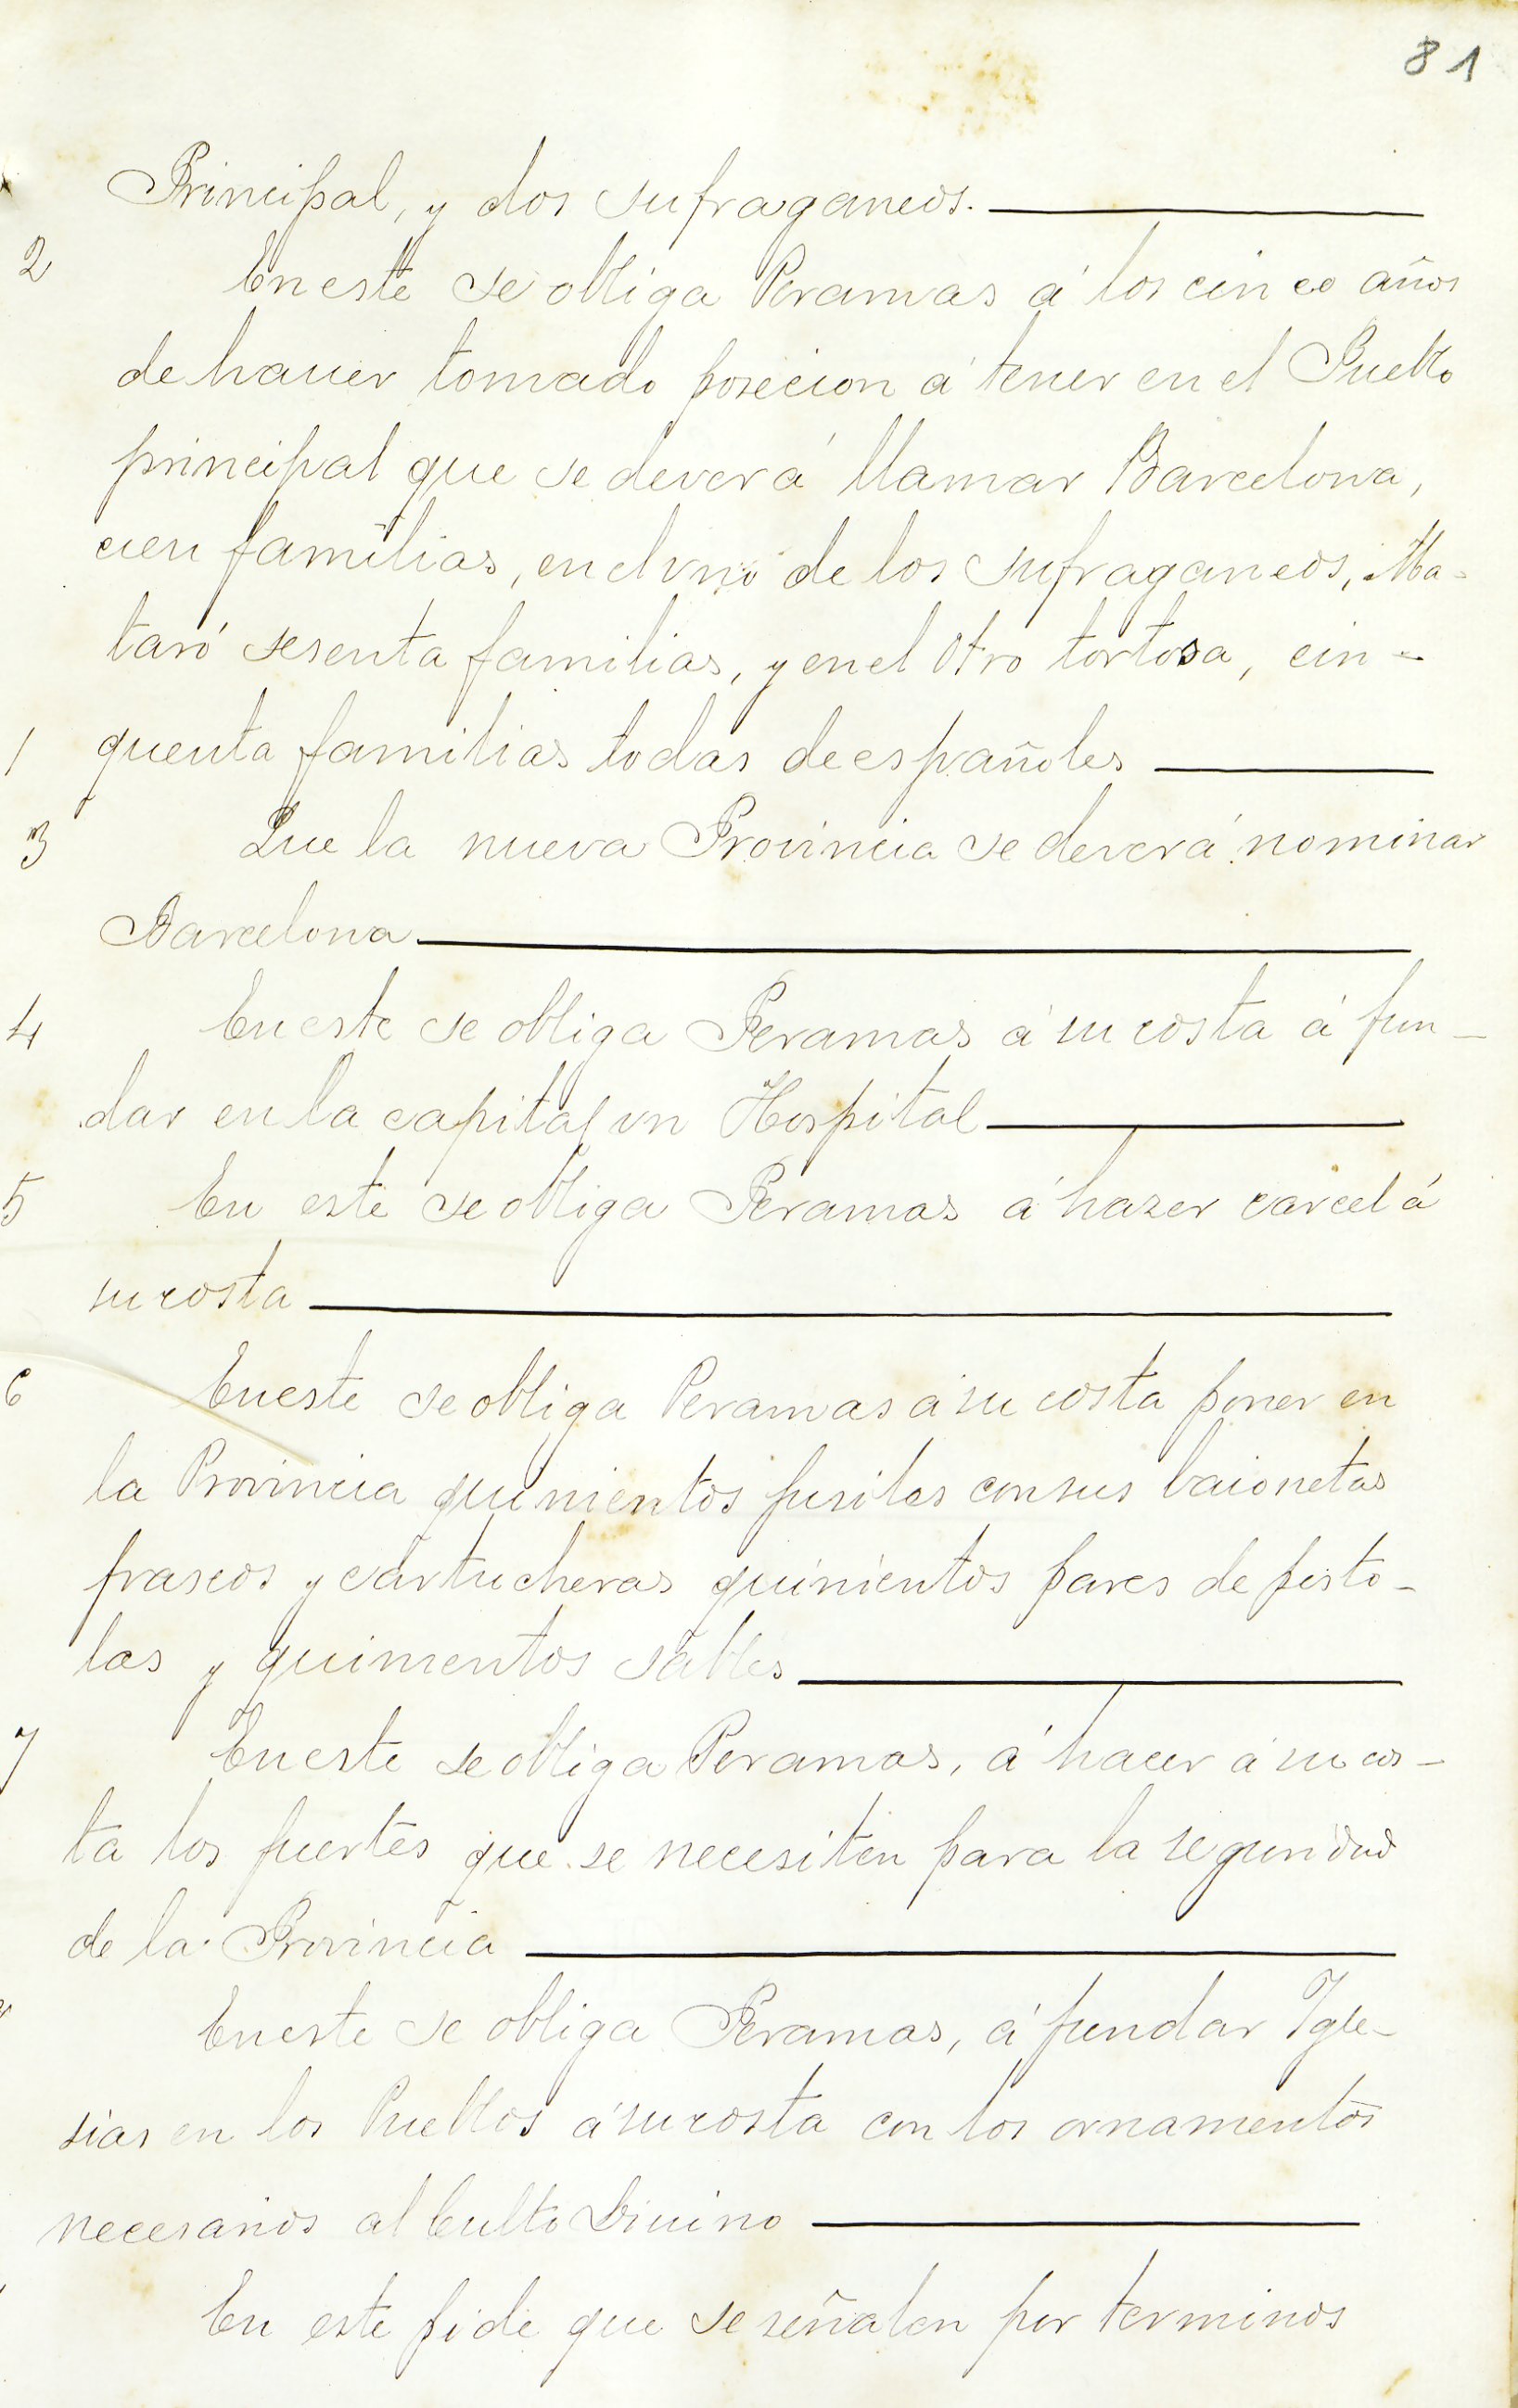 81
Principal, y dos sufraganeos.
2 En este se obliga Peramas á los cinco años
de hauer tomado posecion á tener en el Pueblo
principal que se deverá llamar Barcelona,
cien familias, en el vno de los sufraganeos, Ma-
taró sesenta familias, y en el otro tortosa, cin-
1 quenta familias todas de españoles
3 Que la nueva Provincia se deverá nominar
Barcelona
4 En este se obliga Peramas á su costa á fun-
dar en la capital vn Hospital
5 En este se obliga Peramas á hazer carcel á
su costa
6 En este se obliga Peramas á su costa poner en
la Provincia quinientos fusiles con sus baionetas
frascos y cartucheras quinientos pares de pisto-
las y quinientos sables
7 En este se obliga Peramas, á hacer á su cos-
ta los fuertes que se necesiten para la seguridad
de la Provincia
En este se obliga Peramas, á fundar Igle-
sias en los Pueblos á su costa con los ornamentos
necesarios al Culto Diuino
En este pide que se señalen por terminos